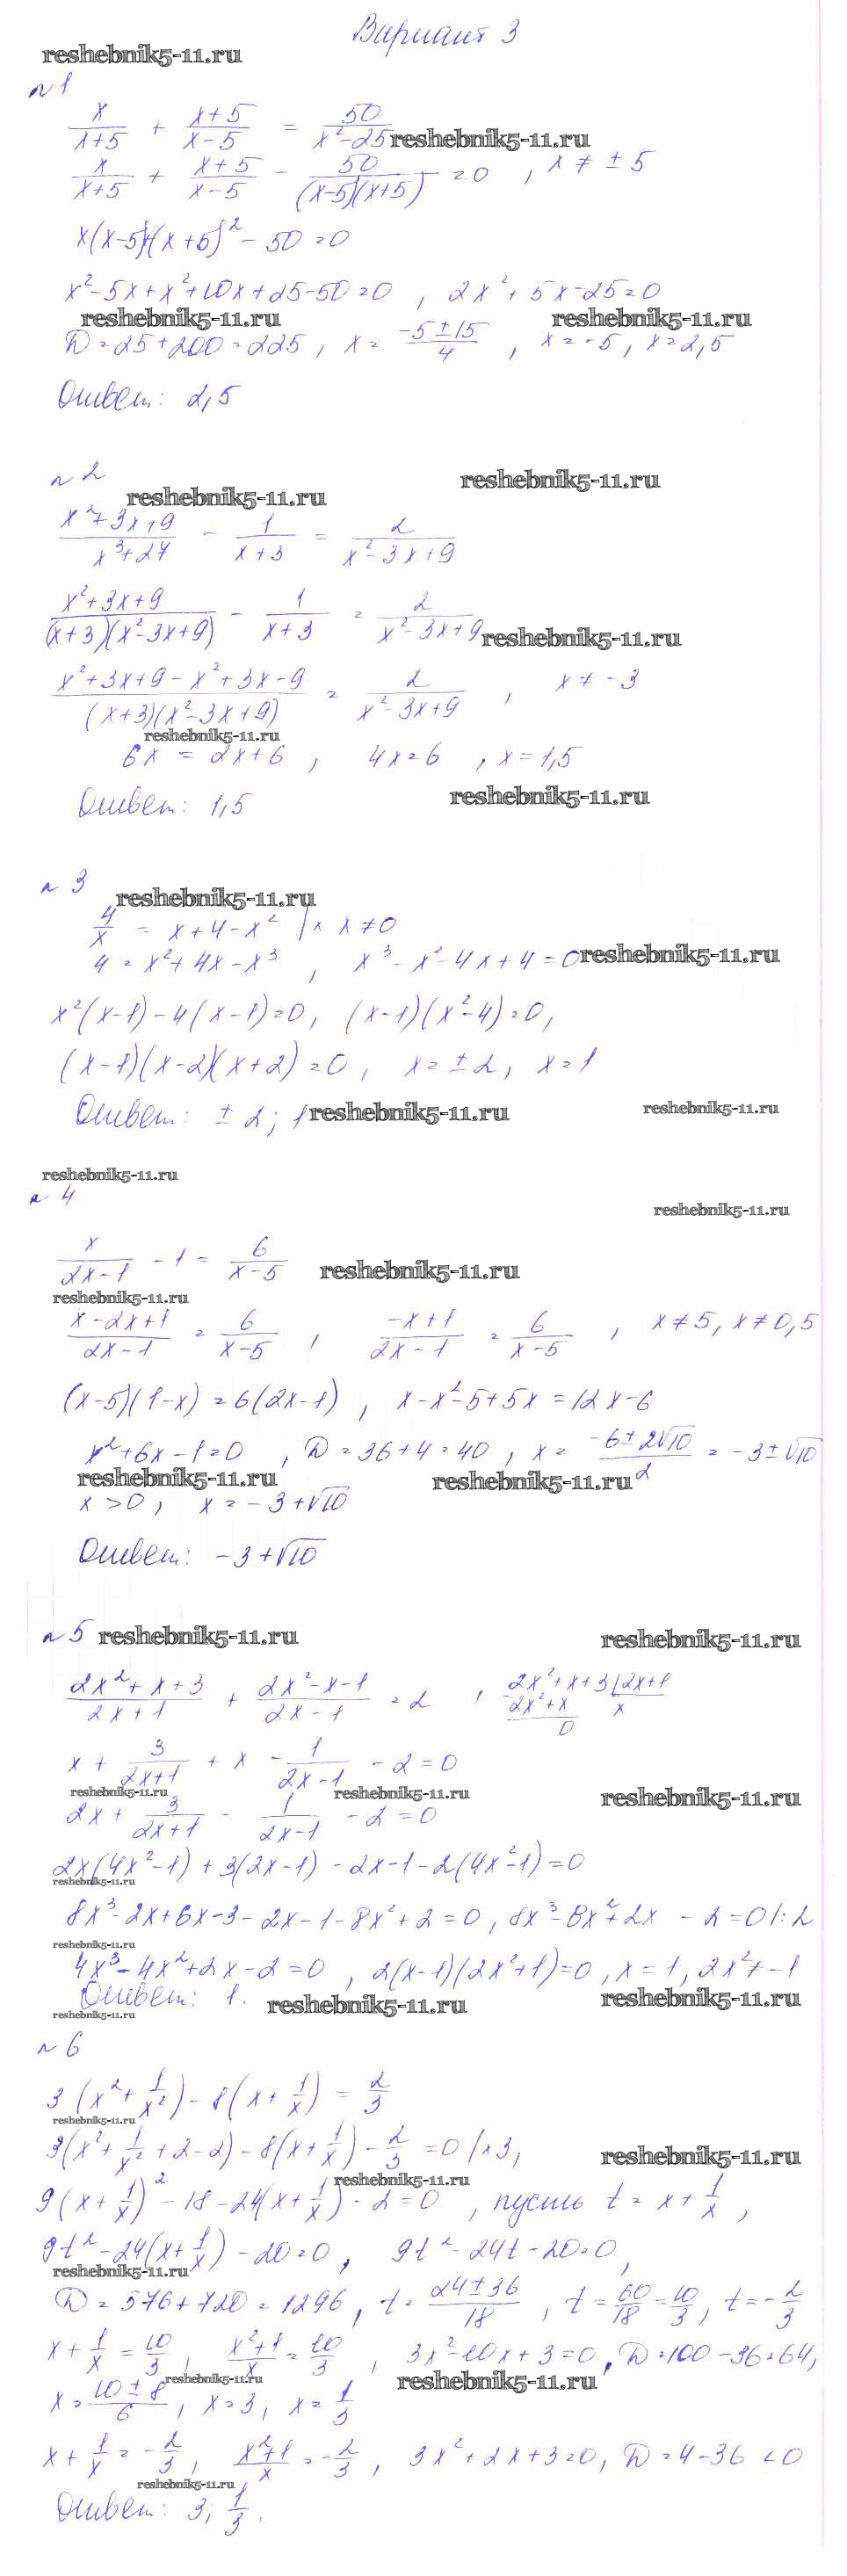 Вариант 3
reshebnik5-11.ru
№1
x/(x+5) + (x+5)/(x-5) = 50/(x²-25) reshebnik5-11.ru
x/(x+5) + (x+5)/(x-5) - 50/((x-5)(x+5)) = 0 , x ≠ ±5
x(x-5)+(x+5)² - 50 = 0
x²-5x+x²+10x+25-50=0 , 2x²+5x-25=0
reshebnik5-11.ru reshebnik5-11.ru
D=25+200=225, x= (-5±15)/4 , x=-5, x=2,5
Ответ: 2,5
№2
reshebnik5-11.ru reshebnik5-11.ru
(x²+3x+9)/(x³+27) - 1/(x+3) = 2/(x²-3x+9)
(x²+3x+9)/((x+3)(x²-3x+9)) - 1/(x+3) = 2/(x²-3x+9) reshebnik5-11.ru
(x²+3x+9-x²+3x-9)/((x+3)(x²-3x+9)) = 2/(x²-3x+9) , x ≠ -3
reshebnik5-11.ru
6x = 2x+6 , 4x=6 , x=1,5
Ответ: 1,5 reshebnik5-11.ru
№3
reshebnik5-11.ru
4/x = x+4-x² |×x x≠0
4=x²+4x-x³ , x³-x²-4x+4=0 reshebnik5-11.ru
x²(x-1)-4(x-1)=0, (x-1)(x²-4)=0,
(x-1)(x-2)(x+2)=0, x=±2, x=1
Ответ: ±2; 1 reshebnik5-11.ru reshebnik5-11.ru
reshebnik5-11.ru
№4
reshebnik5-11.ru
x/(2x-1) - 1 = 6/(x-5) reshebnik5-11.ru
reshebnik5-11.ru
(x-2x+1)/(2x-1) = 6/(x-5) , (-x+1)/(2x-1) = 6/(x-5) , x≠5, x≠0,5
(x-5)(1-x)=6(2x-1) , x-x²-5+5x=12x-6
x²+6x-1=0 , D=36+4=40, x= (-6±2√10)/2 = -3±√10
reshebnik5-11.ru reshebnik5-11.ru
x>0, x=-3+√10
Ответ: -3+√10
№5 reshebnik5-11.ru reshebnik5-11.ru
(2x²+x+3)/(2x+1) + (2x²-x-1)/(2x-1) = 2 , 2x²+x+3 |2x+1
2x²+x x
0
x + 3/(2x+1) + x - 1/(2x-1) - 2=0
reshebnik5-11.ru reshebnik5-11.ru reshebnik5-11.ru
2x + 3/(2x+1) - 1/(2x-1) - 2=0
2x(4x²-1)+3(2x-1)-2x-1-2(4x²-1)=0
reshebnik5-11.ru
8x³-2x+6x-3-2x-1-8x²+2=0, 8x³-8x²+2x-2=0 |:2
reshebnik5-11.ru
4x³-4x²+2x-2=0 , 2(x-1)(2x²+1)=0, x=1, 2x²≠-1
Ответ: 1. reshebnik5-11.ru reshebnik5-11.ru
reshebnik5-11.ru
№6
3(x²+1/x²)-8(x+1/x)=2/3
reshebnik5-11.ru
3(x²+1/x²+2-2)-8(x+1/x)-2/3=0 |×3, reshebnik5-11.ru
reshebnik5-11.ru
9(x+1/x)²-18-24(x+1/x)-2=0 , пусть t=x+1/x ,
9t²-24(x+1/x)-20=0, 9t²-24t-20=0,
reshebnik5-11.ru
D=576+720=1296, t=(24±36)/18 , t=60/18=10/3, t=-2/3
x+1/x=10/3, (x²+1)/x=10/3 , 3x²-10x+3=0, D=100-36=64,
reshebnik5-11.ru reshebnik5-11.ru
x=(10±8)/6, x=3, x=1/3
x+1/x=-2/3, (x²+1)/x=-2/3, 3x²+2x+3=0, D=4-36<0
reshebnik5-11.ru
Ответ: 3; 1/3.